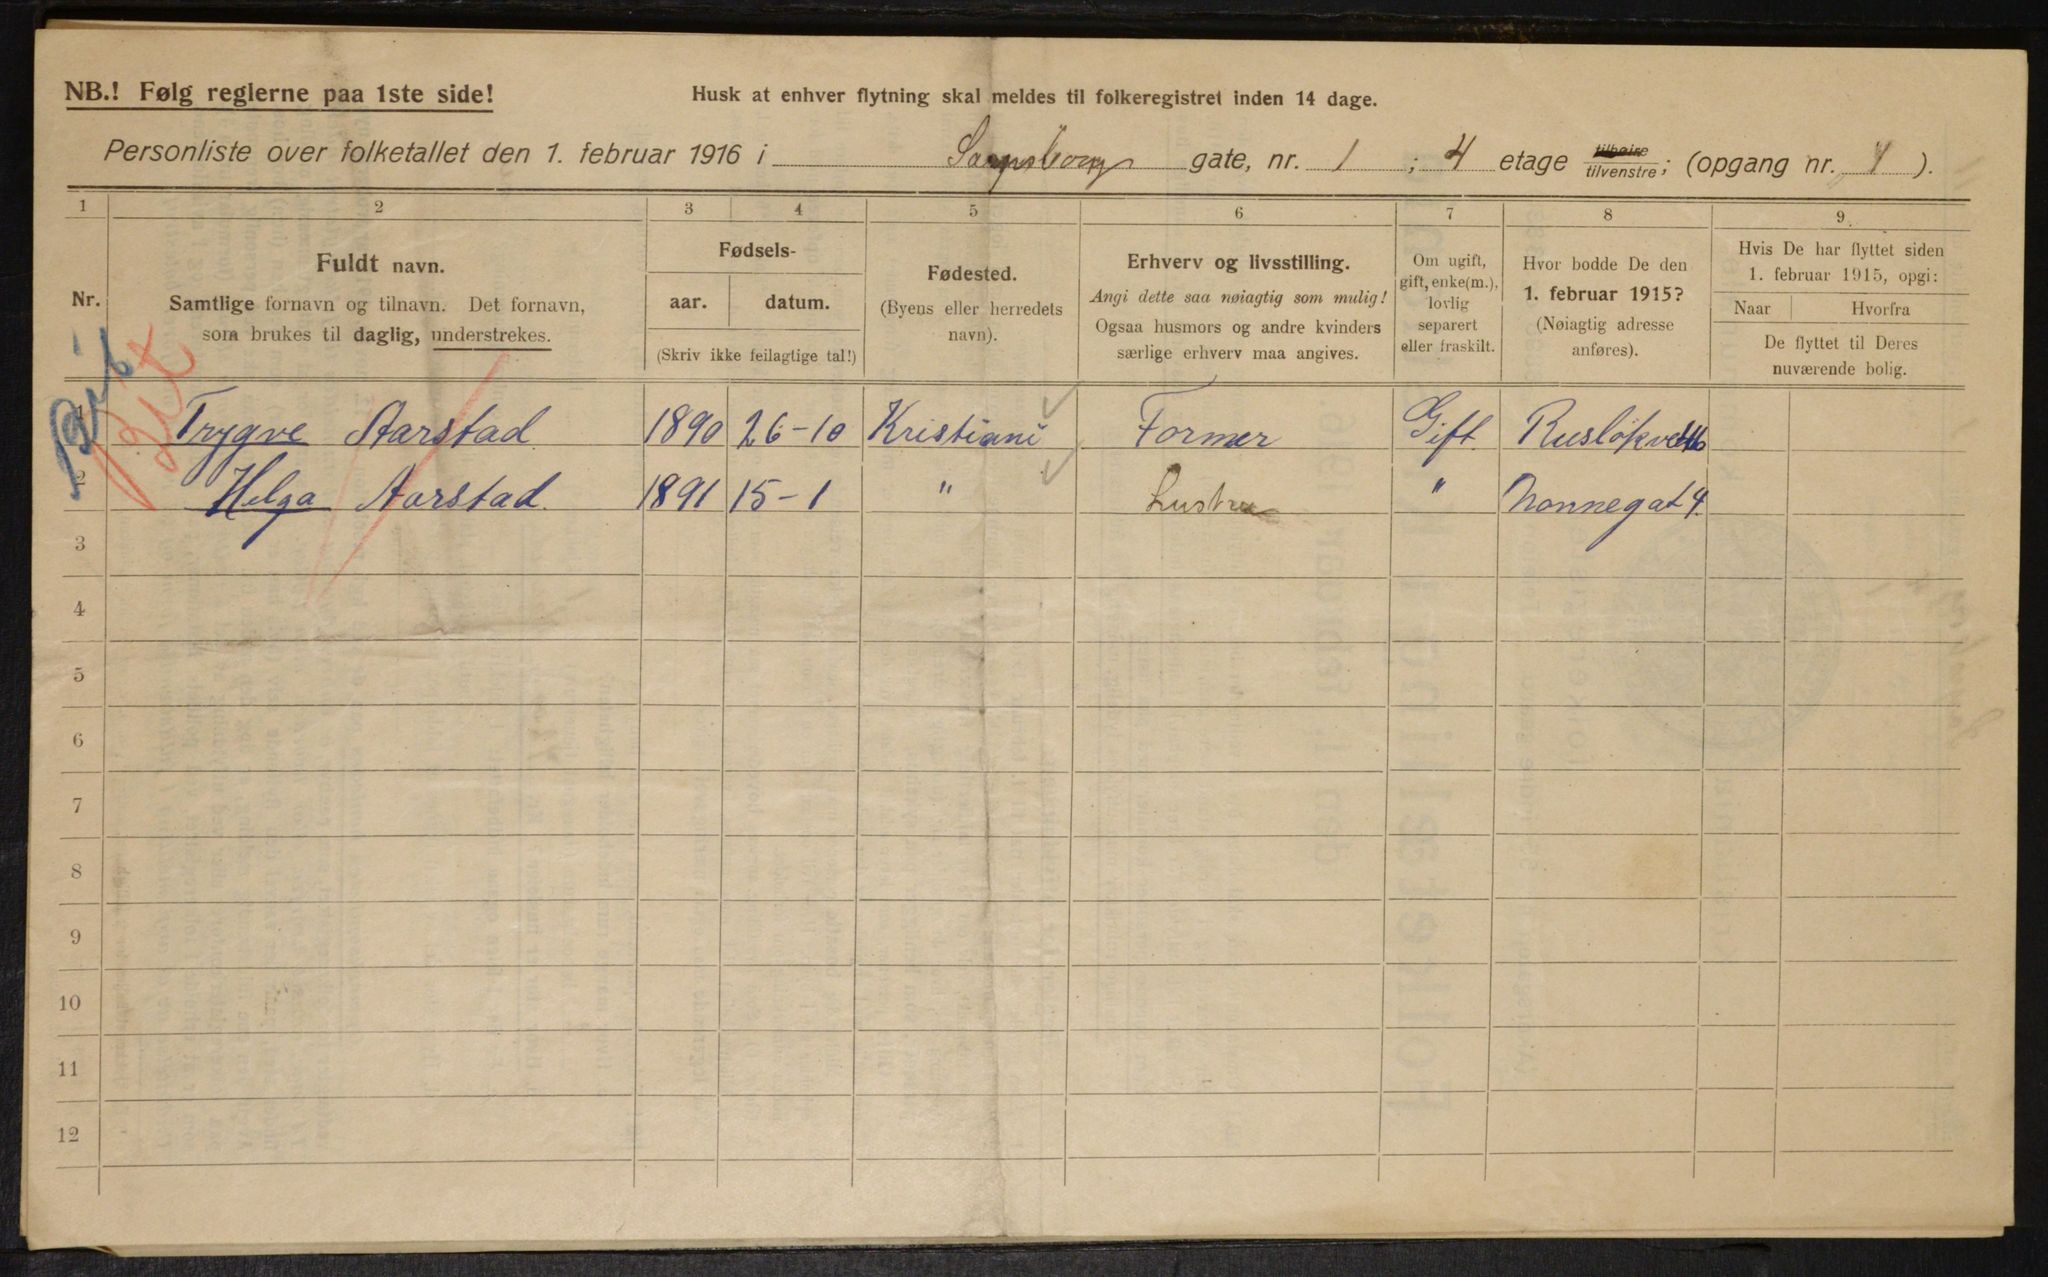 NB.! Følg reglerne paa 1ste side!
Husk at enhver flytning skal meldes til folkeregistret inden 14 dage.
Personliste over folketallet den 1. februar 1916 i Sarpsborg gate, nr. 1 ; 4 etage tilhøire tilvenstre; (opgang nr. 1 ).
1 2 3 4 5 6 7 8 9.
Nr.
Fuldt navn.
Samtlige fornavn og tilnavn. Det fornavn,
som brukes til daglig, understrekes.
Fødsels-
aar. datum.
(Skriv ikke feilagtige tal!)
Fødested.
(Byens eller herredets
navn).
Erhverv og livsstilling.
Angi dette saa nøiagtig som mulig!
Ogsaa husmors og andre kvinders
særlige erhverv maa angives.
Om ugift,
gift, enke(m.),
lovlig
separert
eller fraskilt.
Hvor bodde De den
1. februar 1915?
(Nøiagtig adresse
anføres).
Hvis De har flyttet siden
1. februar 1915, opgi:
Naar Hvorfra
De flyttet til Deres
nuværende bolig.
1 Trygve Aarstad 1890 26-10 Kristiani Former Gift
2 Helga Aarstad. 1891 15-1 " Hustru " Nonnegat 4.
3
4
5
6
7
8
9
10
11
12